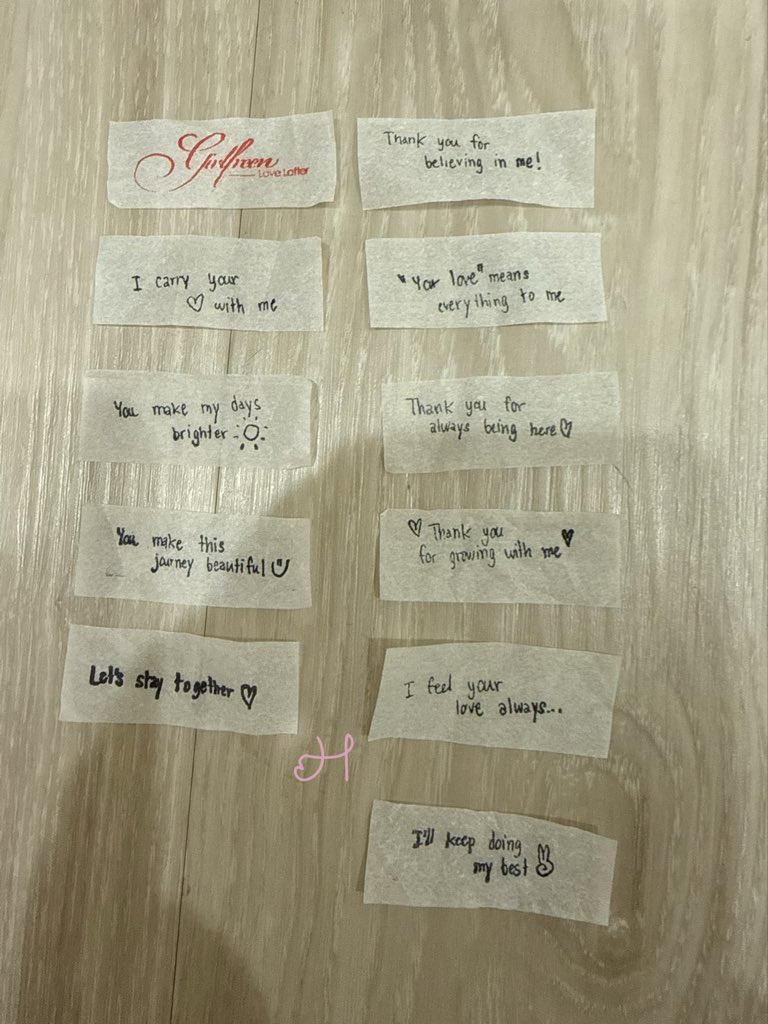 Girlfreen
Love Letter
I carry your
♡ with me
You make my days
brighter
You make this
journey beautiful
Let's stay together ♡
Thank you for
believing in me!
"Your love" means
everything to me
Thank you for
always being here♡
♡ Thank you ♥
for growing with me
I feel your
love always...
I'll keep doing
my best ✌
H